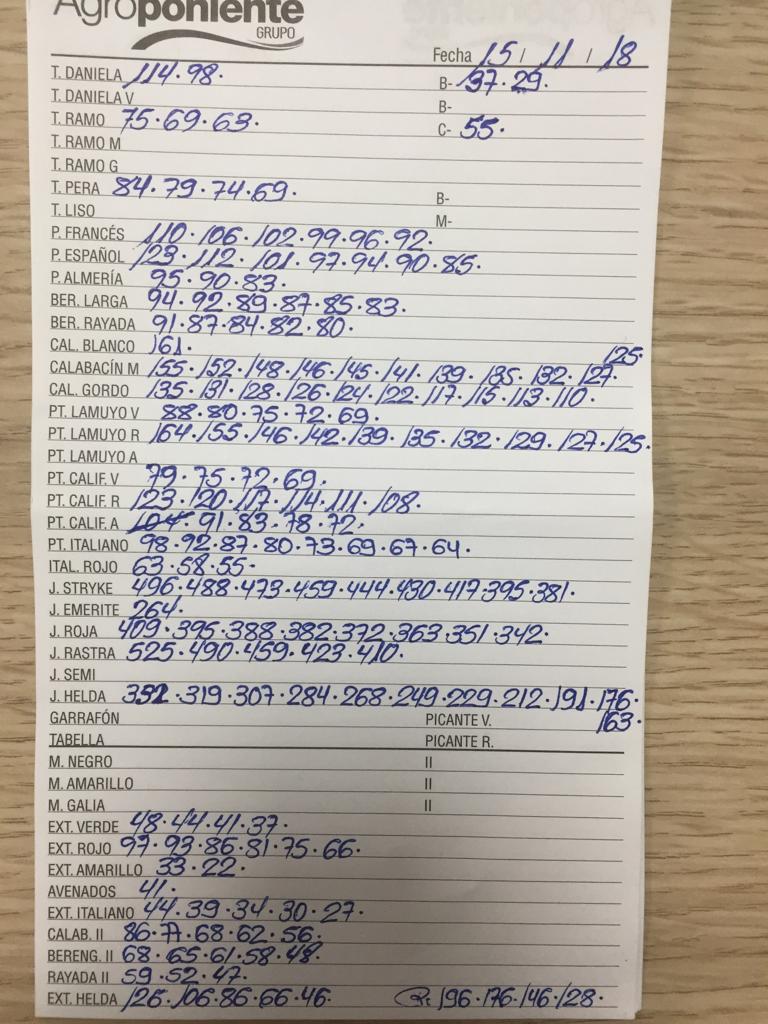 Agroponiente
GRUPO
Fecha 15 / 11 / 18
T. DANIELA 114. 98. B- 37. 29.
T. DANIELA V B-
T. RAMO 75. 69. 63. C- 55.
T. RAMO M
T. RAMO G
T. PERA 84. 79. 74. 69. B-
T. LISO M-
P. FRANCÉS 110. 106. 102. 99. 96. 92.
P. ESPAÑOL 123. 112. 101. 97. 94. 90. 85.
P. ALMERÍA 95. 90. 83.
BER. LARGA 94. 92. 89. 87. 85. 83.
BER. RAYADA 91. 87. 84. 82. 80.
CAL. BLANCO 161.
125.
CALABACÍN M 155. 152. 148. 146. 145. 141. 139. 135. 132. 127.
CAL. GORDO 135. 131. 128. 126. 124. 122. 117. 115. 113. 110.
PT. LAMUYO V 88. 80. 75. 72. 69.
PT. LAMUYO R 164. 155. 146. 142. 139. 135. 132. 129. 127. 125.
PT. LAMUYO A
PT. CALIF. V 79. 75. 72. 69.
PT. CALIF. R 123. 120. 117. 114. 111. 108.
PT. CALIF. A 104. 91. 83. 78. 72.
PT. ITALIANO 98. 92. 87. 80. 73. 69. 67. 64.
ITAL. ROJO 63. 58. 55.
J. STRYKE 496. 488. 473. 459. 444. 430. 417. 395. 381.
J. EMERITE 264.
J. ROJA 409. 395. 388. 382. 372. 363. 351. 342.
J. RASTRA 525. 490. 459. 423. 410.
J. SEMI
J. HELDA 319. 307. 284. 268. 249. 229. 212. 191. 176.
163.
GARRAFÓN PICANTE V.
TABELLA PICANTE R.
M. NEGRO II
M. AMARILLO II
M. GALIA II
EXT. VERDE 48. 44. 41. 37.
EXT. ROJO 97. 93. 86. 81. 75. 66.
EXT. AMARILLO 33. 22.
AVENADOS 41.
EXT. ITALIANO 44. 39. 34. 30. 27.
CALAB. II 86. 77. 68. 62. 56.
BERENG. II 68. 65. 61. 58. 48.
RAYADA II 59. 52. 47.
EXT. HELDA 126. 106. 86. 66. 46. R: 196. 176. 146. 128.